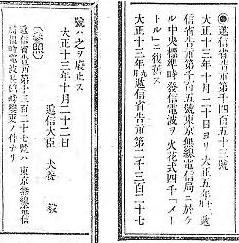 ◉遞信省告示第千四百五十三號
大正十三年十月二十日ヨリ大正五年七月遞
信省告示第千百五號東京無線電信局ニ於ケ
ル中央標準時發信電波ヲ火花式四千「メー
トル」ニ復舊ス
大正十三年九月遞信省告示第二千三百二十七
號ハ之ヲ廢止ス
大正十三年十月二十二日
遞信大臣 犬養 毅
(參照)
遞信省告示第二千三百二十七號ハ東京無線電信
局標準時電波ヲ臨時變更ノ件ナリ